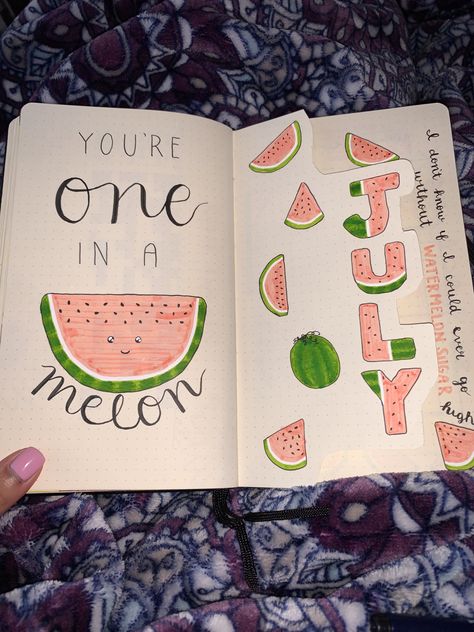 YOU'RE
one
IN A
melon
JULY
I don't know if I could ever go
without WATERMELON SUGAR high